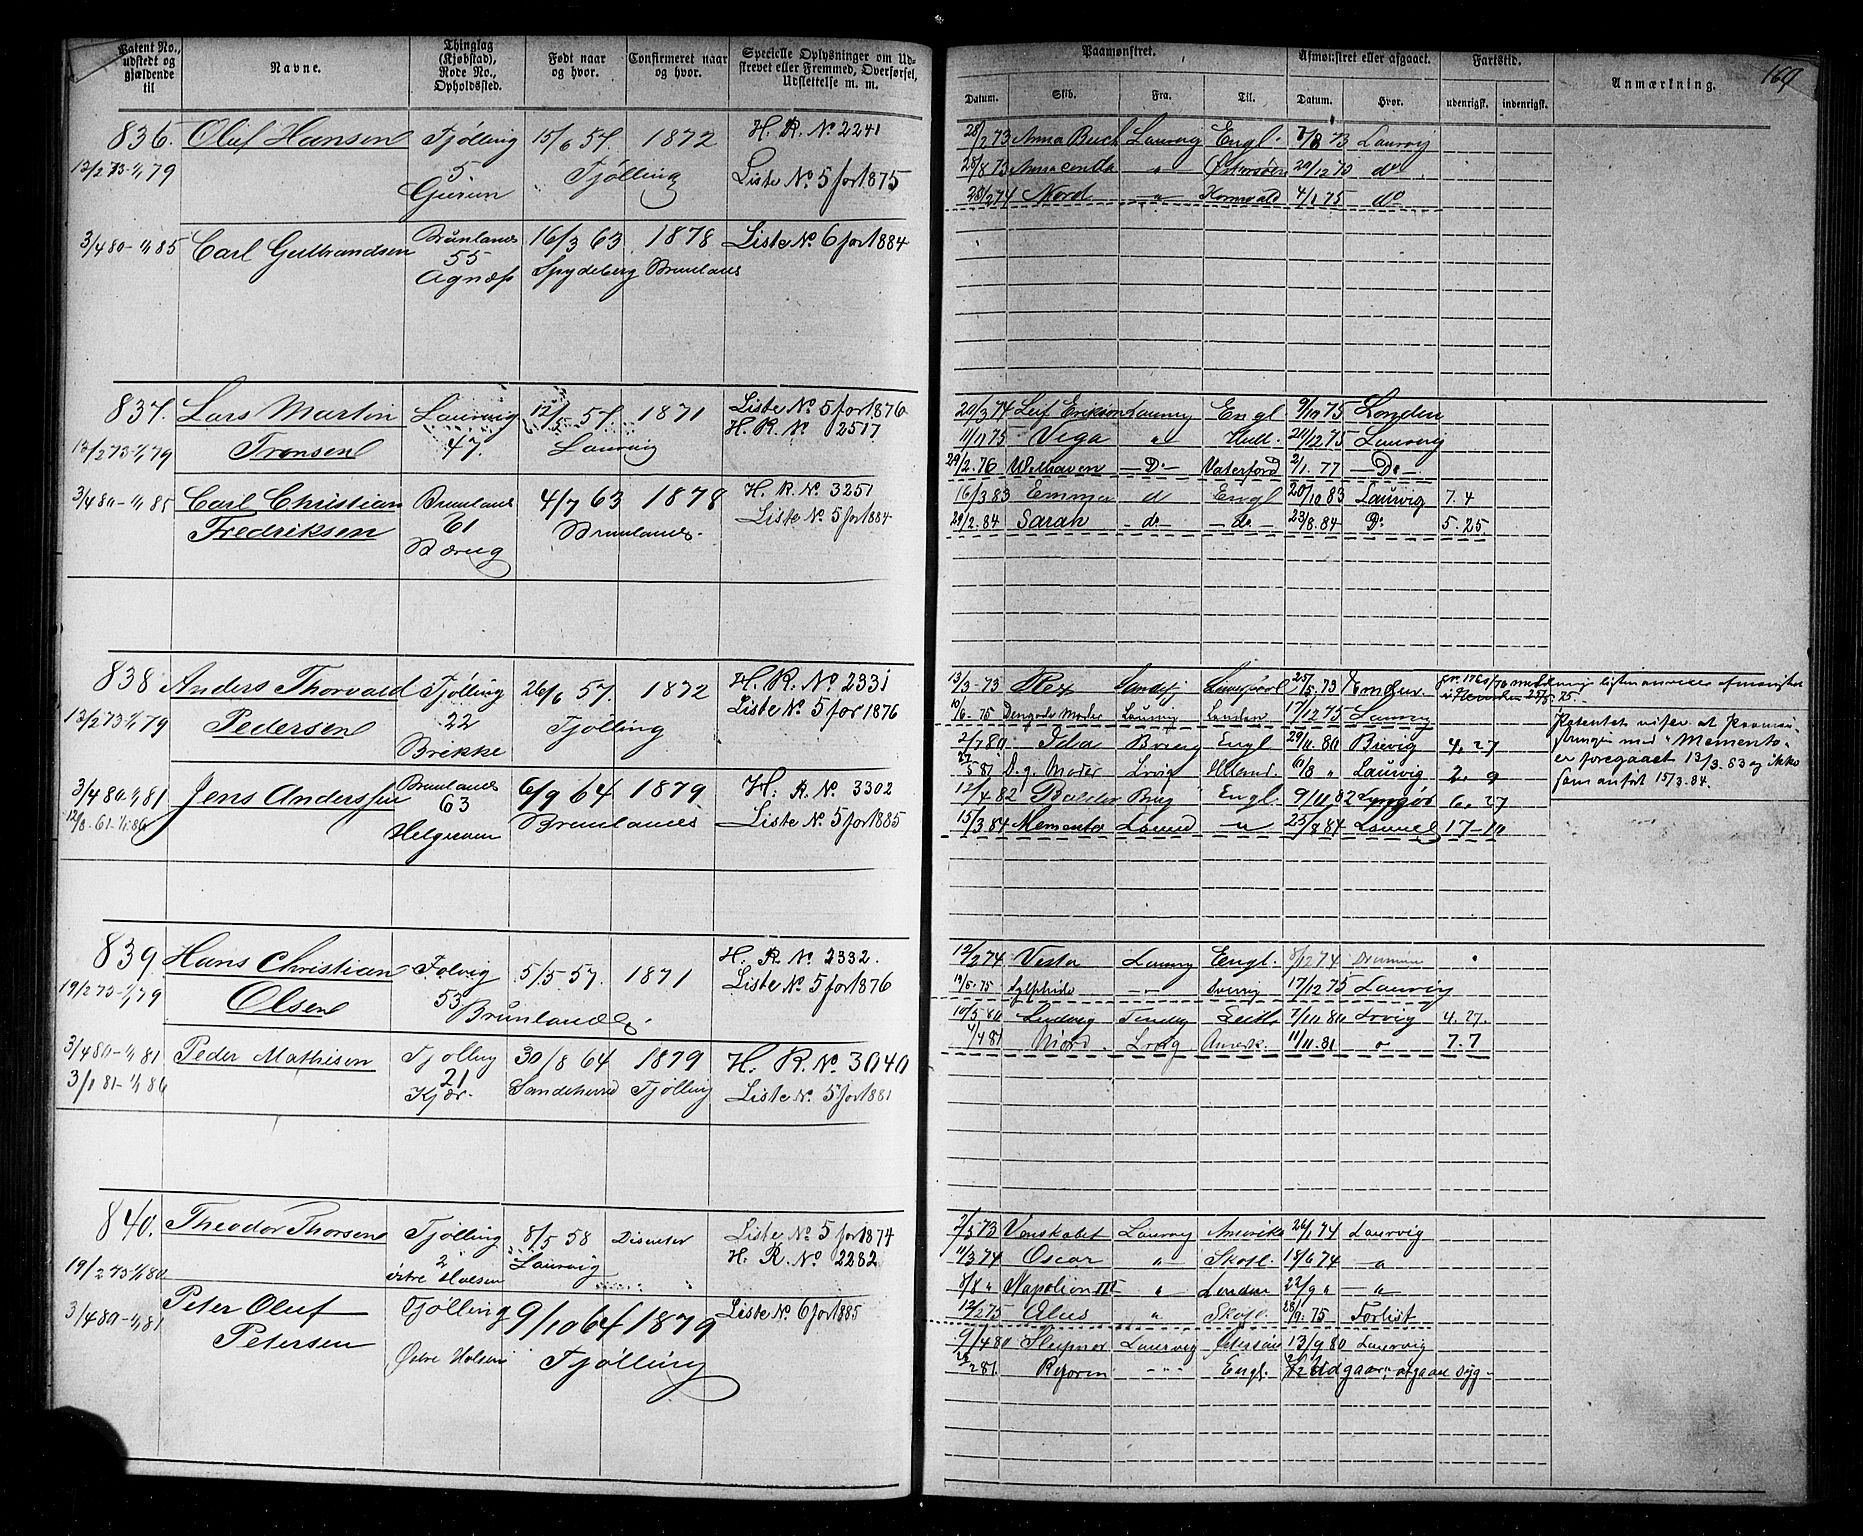 Patent No., udstedt og gjældende til
Navne.
Thinglag (Kjøbstad), Rode No., Opholdssted.
Født naar og hvor.
Confirmeret naar og hvor.
Specielle Oplysninger om Udskrevet eller Fremmed, Overførsel, Udslettelse m. m.
Paamønstret.
Afmønstret eller afgaaet.
Fartstid.
Anmærkning.
169
Datum. Skib. Fra. Til. Datum. Hvor. udenrigsk. indenrigsk.
836. Oluf Hansen Tjølling 15/6 57. 1872 H. R. No 2241
12/2 73-1/1 79 5 Tjølling Liste No 5 for 1875
28/2 73 Anna Buch Laurvig Engl. 7/8 73 Laurvig
25/8 73 " Østersøen 20/12 73 do
25/2 74 Nord " 4/1 75 do
3/4 80-1/1 85 Carl Gulbrandsen Brunlanes 16/3 63 1878 Liste No 6 for 1884
55 Spydeberg Brunlanes
Agnæs
837. Lars Martin Laurvig 12/5 57. 1871 Liste No 5 for 1876
13/2 73-1/1 79 Tronsen 47. Laurvig H. R. No 2517
20/3 74 Leif Erikson Laurvig Engl 9/10 75 London
11/11 75 Vega " 20/12 75 Laurvig
29/2.76 Welhaven - Do - Vaterford 2/1.77 - Do -
3/4 80-1/1 85 Carl Christian Brunlanes 4/7 63 1878 H. R. No 3251
Fredriksen 61 Brunlanes. Liste No 5 for 1884
16/3 83 Emma d Engl 20/10 83 Laurvig 7.4
29/2.84 Sarah - do - - do - 23/8.84 Do 5.25
838 Anders Thorvald Tjølling 26/6 57. 1872 H. R. No 2331
13/2 73-1/1 79 Pedersen 22 Tjølling Liste No 5 for 1876
Brekke
13/3-73 Rex 25/5.73
10/6-75 Laurvig London 17/12 75 Laurvig
2/7 80 Ida Engl 29/11.80 Brevig 4.27
5 81 D. g. Moder Lrvig 6/8 " Laurvig 2. 9
3/4 80-1/1 81 Jens Anderssen Brunlanes 6/9 64 1879 H. R. No 3302
63 Brunlanes Liste No 5 for 1885
12/4 82 Balder Engl. 9/11 82 Lyngør 6.27
15/3 84 Memento " 25/8 84 17-10
Patentet viser at Paamønstringen med "Memento" er foregaaet 13/3.83 og ikke som anført 15/3.84.
839 Hans Christian 5/5 57. 1871 H. R. No 2332.
19/2 73-1/1 79 Olsen 53 Brunlanes Liste No 5 for 1876
12/2 74 Vesta Laurvig Engl. 8/12 74
19/5.75 Sylphide 17/12 75 Laurvig
10/5 80 Ludvig Leith 7/11 80 Lrvig 4.27.
4/4 81 Nord. Lrvig 11/11.81 " 7.7
3/4 80-1/1 81 Peder Mathisen Tjølling 30/8 64 1879 H. R. No 3040
3/1 81-1/1 86 21 Sandeherred Tjølling Liste No 5 for 1881
Kjær.
840. Theodor Thorsen Tjølling 8/5 58 Disenter Liste No 5 for 1874
19/2 73-1/1 80 2 Laurvig H. R. No 2282
7/5 73 Venskabet Laurvig Amerika 26/1 74 Laurvig
11/3 74 Oscar " Skotl. 18/6 74 - " -
8/8 " Napolion III " London 22/9 " - " -
12/2 75 " Skotl. 28/9.75 Forlist
3/4 80-1/1 81 Peter Oluf Tjølling 9/10 64 1879 Liste No 6 for 1885
Petersen Tjølling
Østre Halsen
9/4 80 Sleipner Laurvig 13/9 80 Laurvig
2 81. Reform - " - Engl. Udgaar, afgaaet syg -